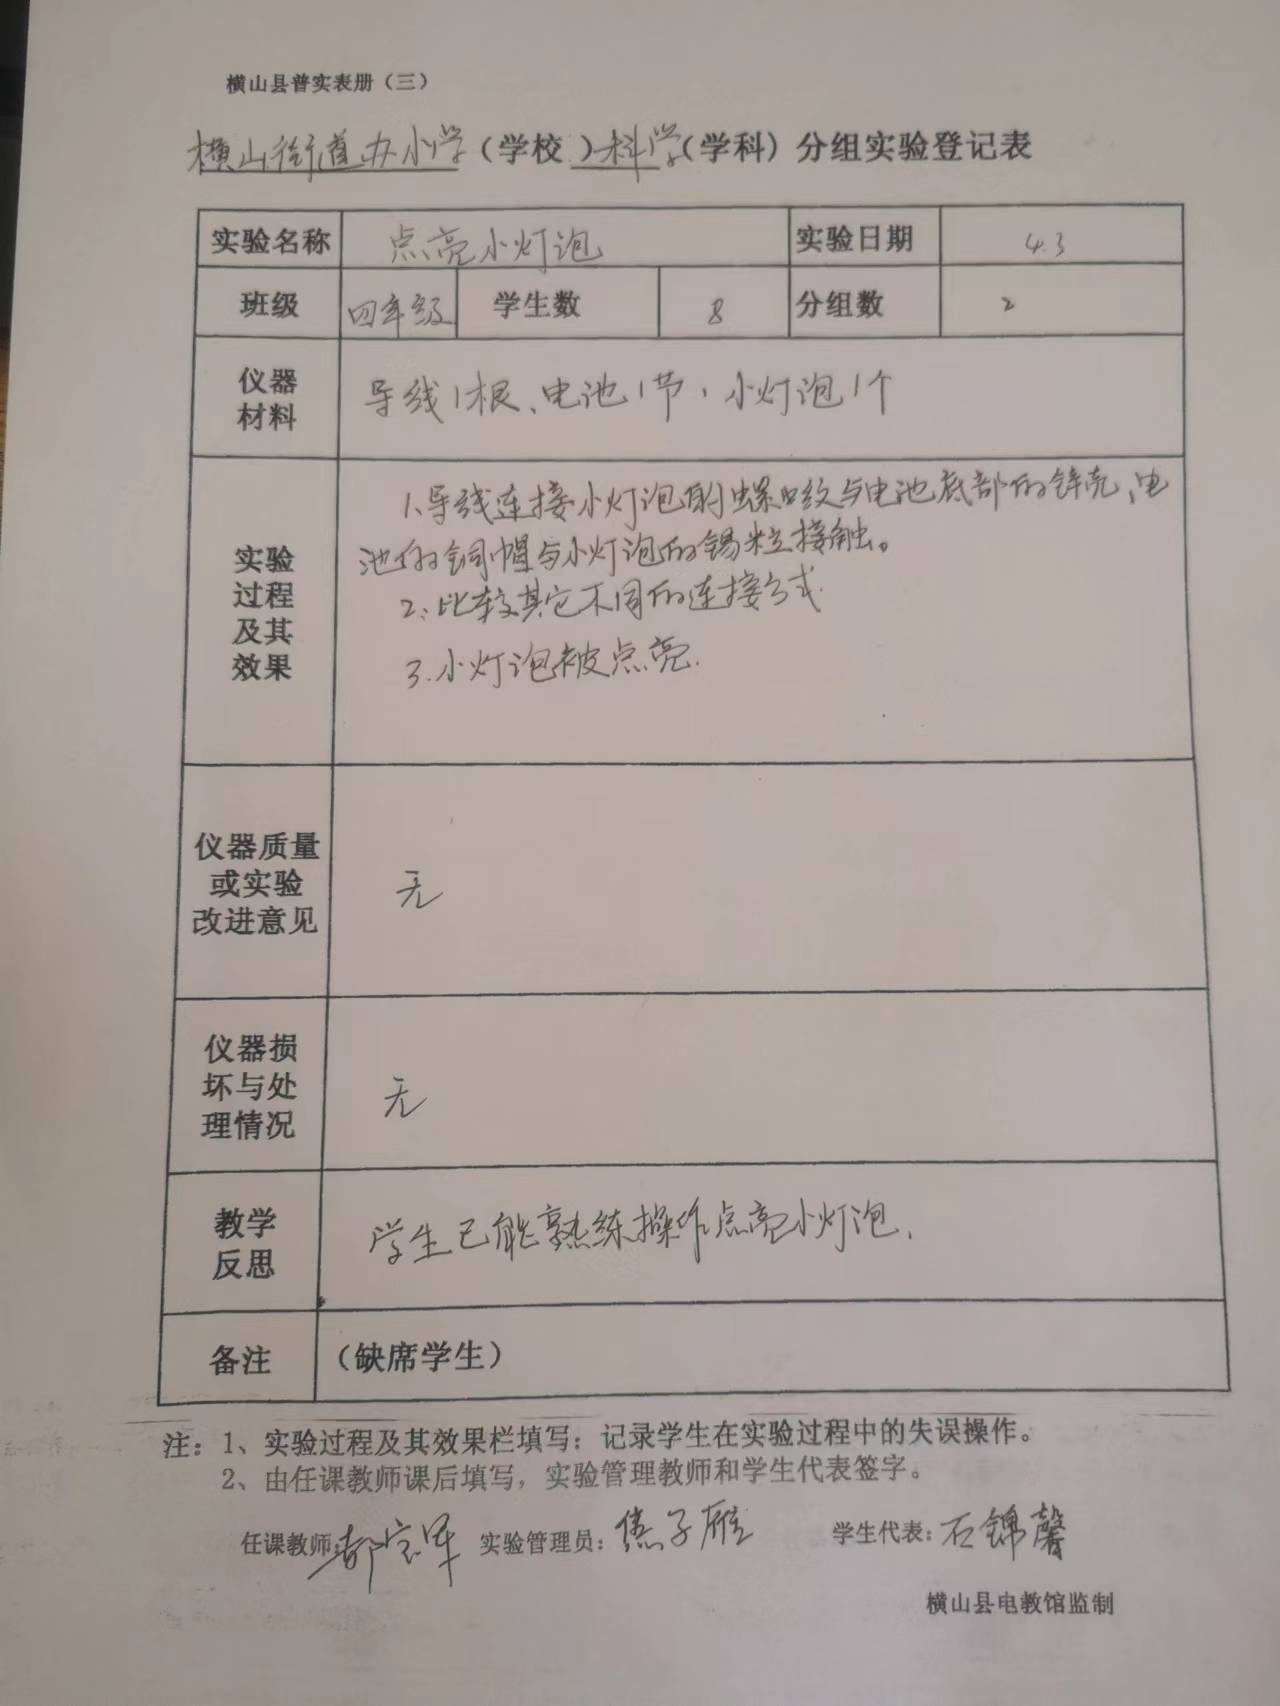 横山县普实表册（三）
横山街道办小学（学校）科学（学科）分组实验登记表
实验名称 点亮小灯泡 实验日期 4.3
班级 四年级 学生数 8 分组数 2
仪器
材料
导线1根、电池1节，小灯泡1个
实验
过程
及其
效果
1.导线连接小灯泡的螺口纹与电池底部的锌壳、电
池的铜帽与小灯泡的锡粒接触。
2.比较其它不同的连接方式.
3.小灯泡被点亮.
仪器质量
或实验
改进意见
无
仪器损
坏与处
理情况
无
教学
反思
学生已能熟练操作点亮小灯泡.
备注 （缺席学生）
注：1、实验过程及其效果栏填写：记录学生在实验过程中的失误操作。
2、由任课教师课后填写，实验管理教师和学生代表签字。
任课教师: 实验管理员: 焦子雁 学生代表: 石锦馨
横山县电教馆监制